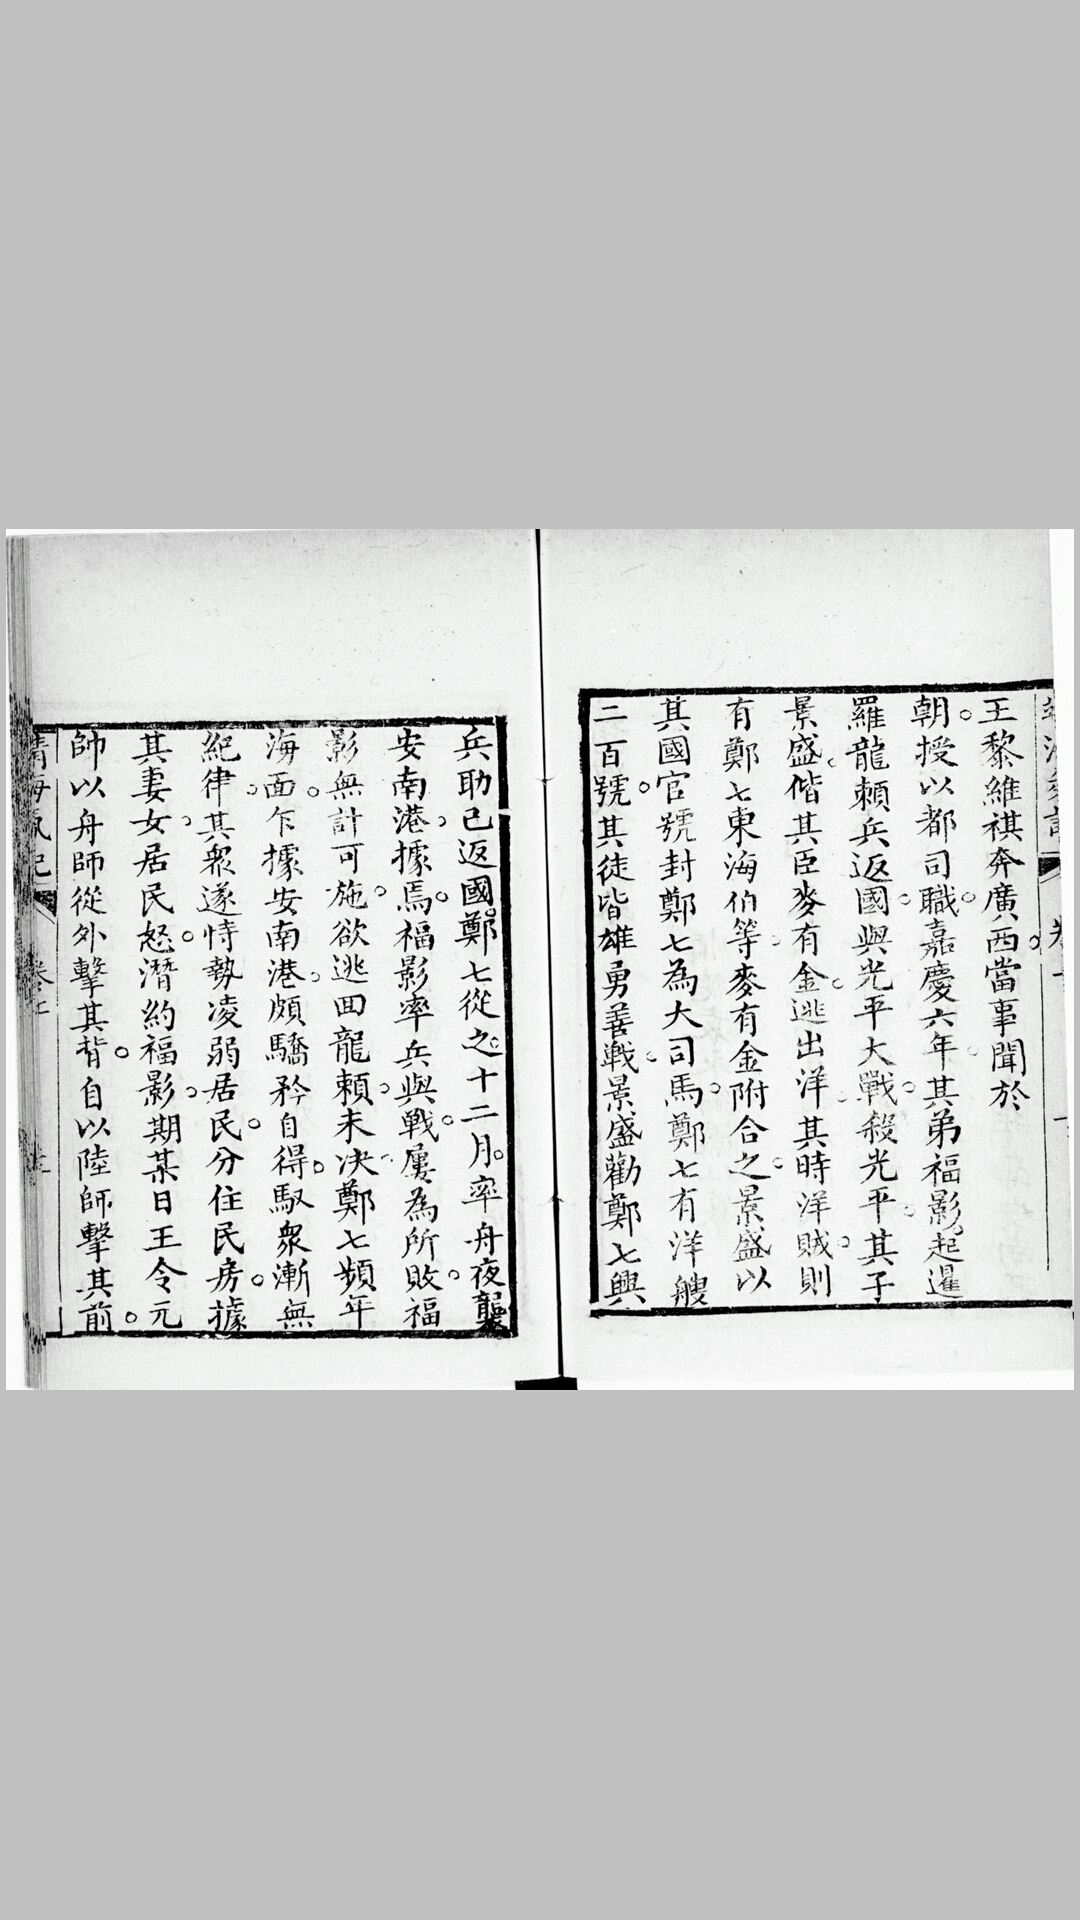 王黎維祺奔廣西當事聞於
朝授以都司職嘉慶六年其弟福影起暹
羅龍賴兵返國與光平大戰殺光平其子
景盛偕其臣麥有金逃出洋其時洋賊則
有鄭七東海伯等麥有金附合之景盛以
其國官號封鄭七為大司馬鄭七有洋艘
二百號其徒皆雄勇善戰景盛勸鄭七興
兵助己返國鄭七從之十二月率舟夜襲
安南港據焉福影率兵與戰屢為所敗福
影無計可施欲逃回龍賴未决鄭七頻年
海面乍據安南港頗驕矜自得馭衆漸無
紀律其衆遂恃勢凌弱居民分住民房據
其妻女居民怒潛約福影期某日王令元
帥以舟師從外擊其背自以陸師擊其前